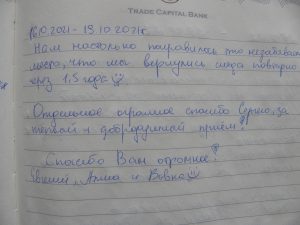 TRADE CAPITAL BANK
16.10.2021 - 19.10.2021г.
Нам настолько понравилось это незабываемое
место, что мы вернулись сюда повторно
через 1,5 года
Отдельное огромное спасибо Сергею, за
теплый и добродушный приём!
Спасибо Вам огромное!
Евгений, Анна и Вовка